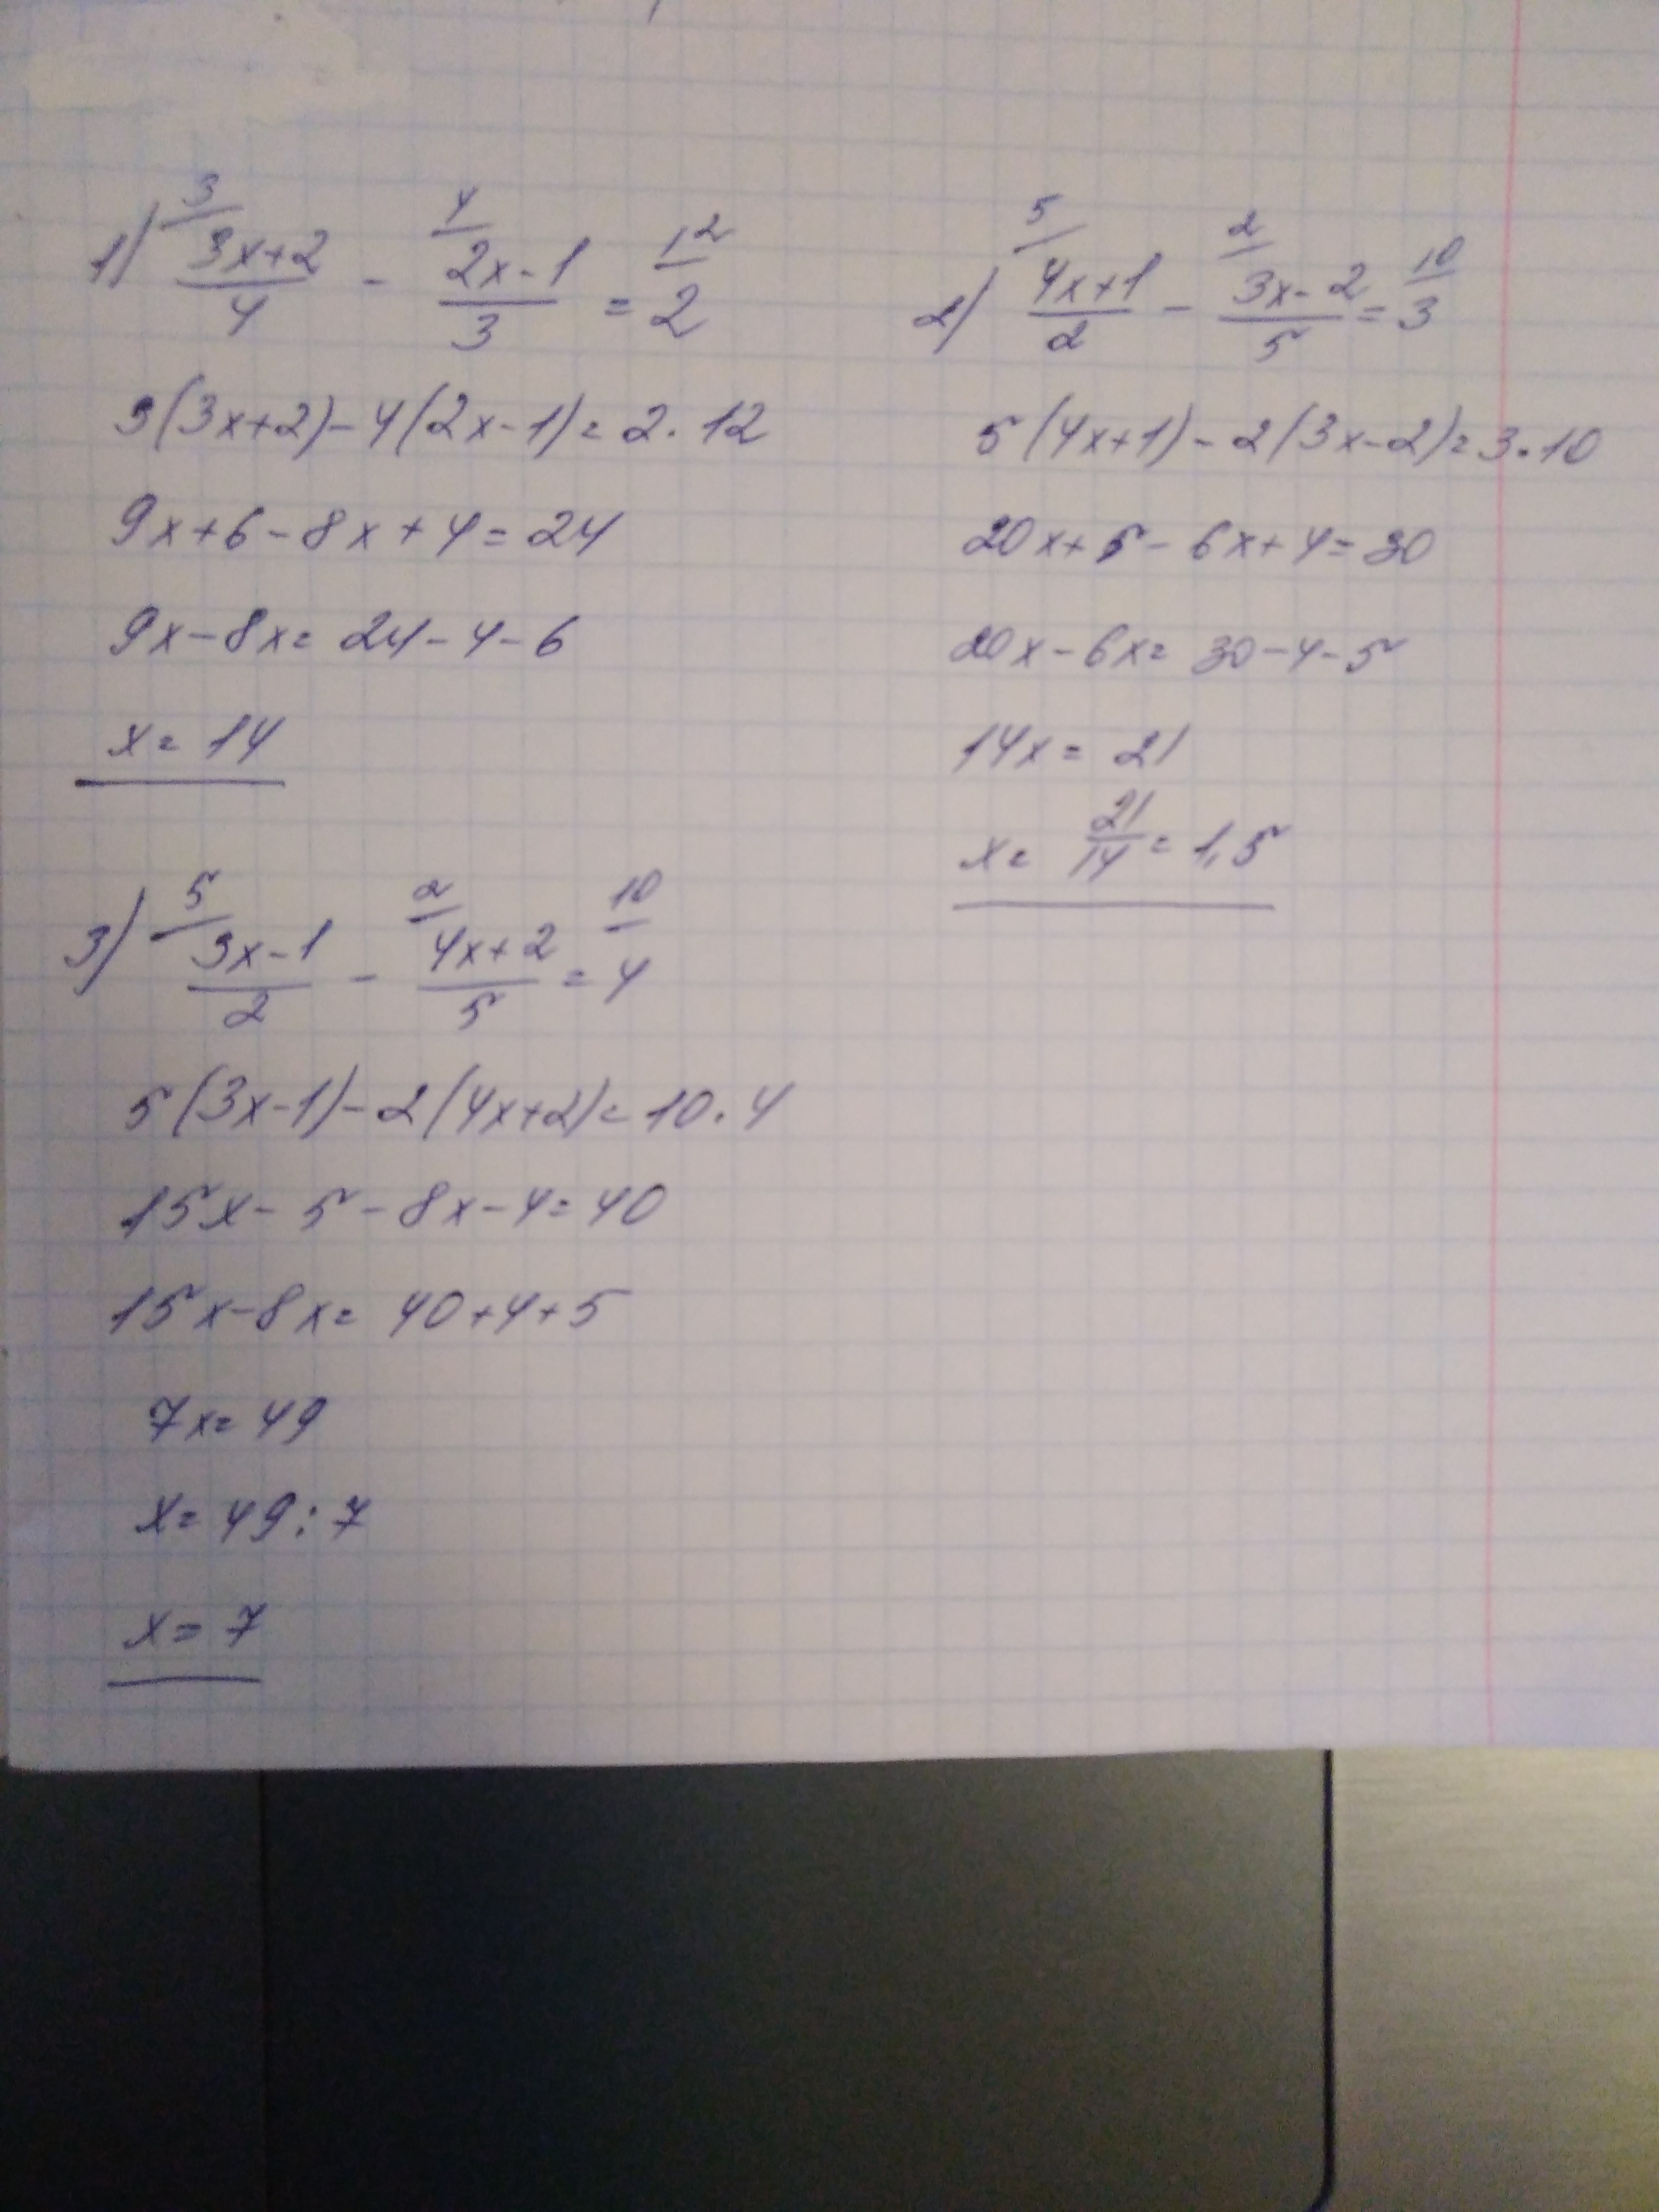 1) 3/ (3x+2)/4 - 4/ (2x-1)/3 = 12/ 2
3(3x+2)-4(2x-1)=2·12
9x+6-8x+4=24
9x-8x=24-4-6
x=14
2) 5/ (4x+1)/2 - 2/ (3x-2)/5 = 10/ 3
5(4x+1)-2(3x-2)=3·10
20x+5-6x+4=30
20x-6x=30-4-5
14x=21
x=21/14=1,5
3) 5/ (3x-1)/2 - 2/ (4x+2)/5 = 10/ 4
5(3x-1)-2(4x+2)=10·4
15x-5-8x-4=40
15x-8x=40+4+5
7x=49
x=49:7
x=7